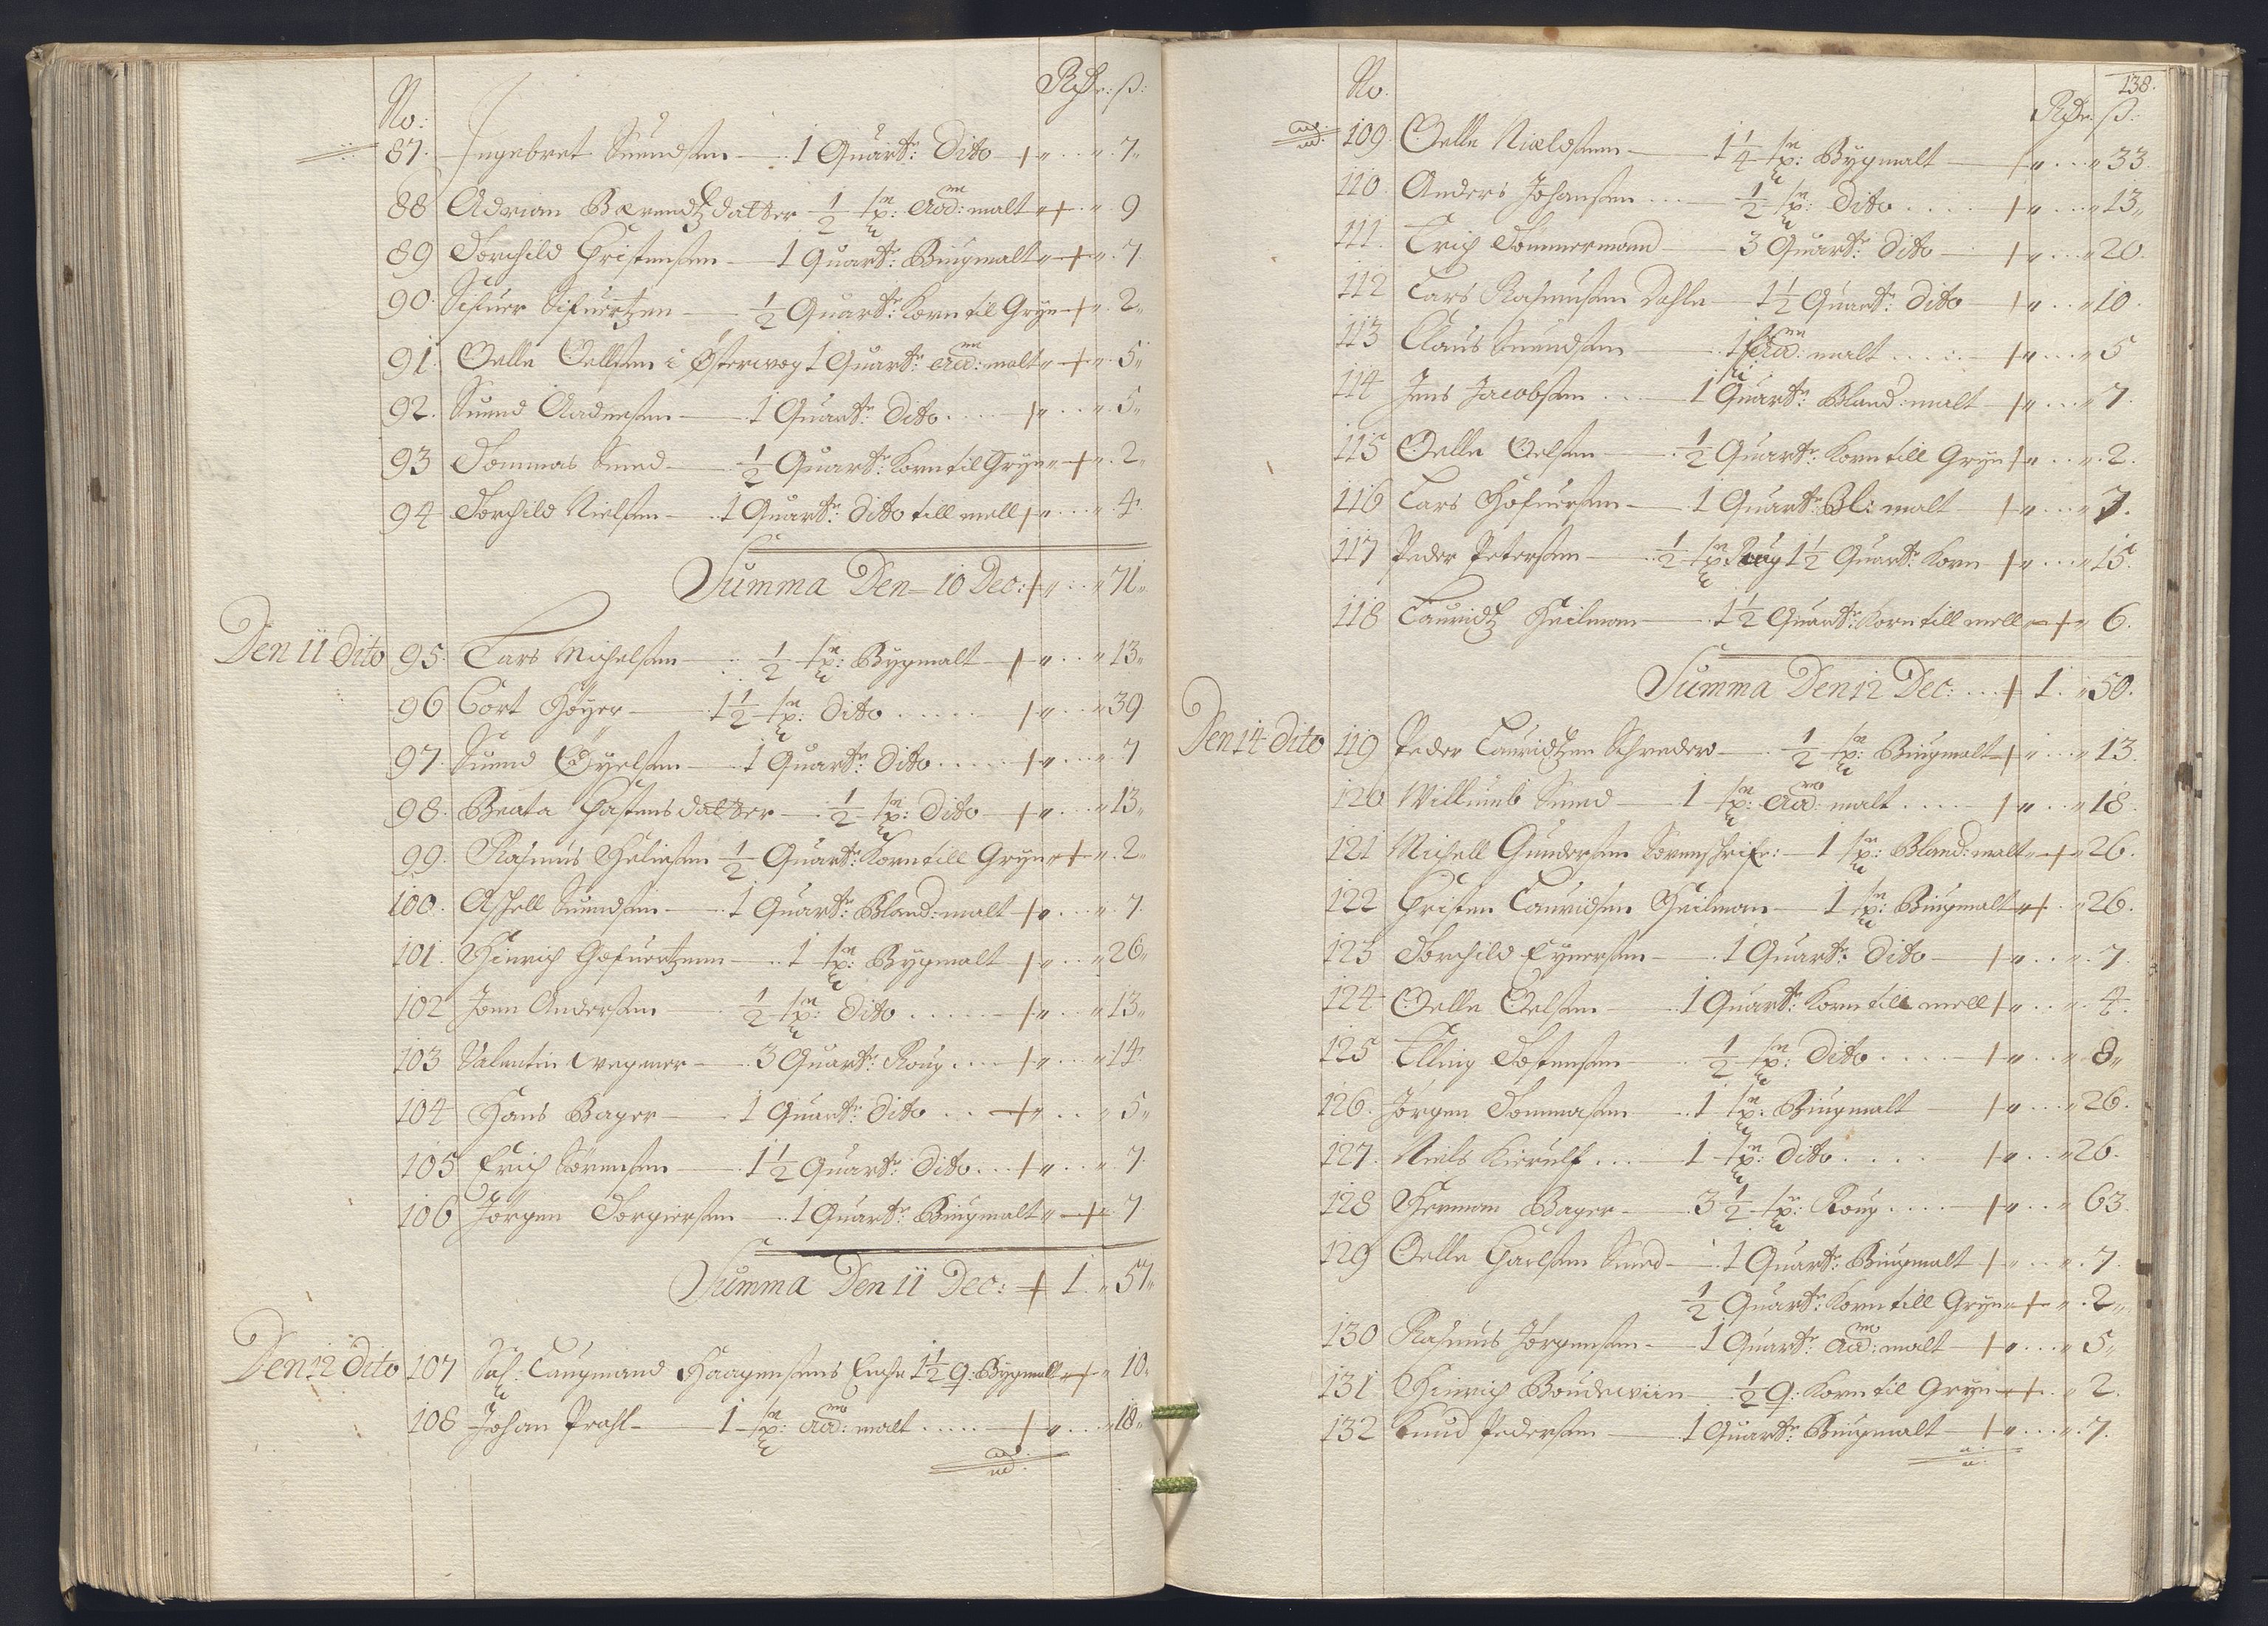 No: Rdr: ß:
87. Ingebret Suendsen 1 Quart: Dito " " 7
88 Adrian Bærendtzdatter ½ sp: Aad: malt " " 9
89 Torchild Christensen 1 Quart: Biugmalt " " 7
90. Sifuer Sifuertzen ½ Quart: Korn til Gryn " " 2
91. Oelle Oellsen i Østerwog 1 Quart: Aad: malt " " 5
92. Suend Aadensen 1 Quart: Dito " " 5
93 Tommas Smed ½ Quart: Korn til Gryn " " 2
94 Torchild Nielsen 1 Quart: Dito till mell " " 4
Summa Den 10 Dec: " " 71
Den 11 Dito 95. Lars Michelsen ½ sp: Bygmalt " " 13
96 Cort Høyer 1½ sp: Dito " " 39
97. Suend Øyelsen 1 Quart: Dito " " 7
98. Beata Castensdatter ½ sp: Dito " " 13
99. Rasmus Heliesen ½ Quart: Korn till Gryn " " 2
100. Aschell Suendsen 1 Quart: Bland: malt " " 7
101. Hinrich Gofuertzenn 1 sp: Bygmalt " " 26
102 Jonn Andersen ½ sp: Dito " " 13
103 Valentin Wegener 3 Quart: Roug " " 14
104 Hans Bager 1 Quart: Dito " " 5
105 Erich Sørensen 1½ Quart: Dito " " 7
106 Jørgen Torgiersen 1 Quart: Biugmalt " " 7
Summa Den 11 Dec: 1 " 57
Den 12 Dito 107 Sal. Laugmand Haagensens Enche 1½ Q: Bygmalt " " 10
108 Johan Prahl 1 sp: Aad: malt " " 18
138.
No. Rdr: ß:
109. Oelle Nielssenn 1¼ sp: Bygmalt " " 33
110. Anders Johansen ½ sp: Dito " " 13
111. Erich Tømmermand 3 Quart: Dito " " 20
112 Lars Rasmusen Dahle 1½ Quart: Dito " " 10
113 Claus Suendsen 1 Aad: malt " " 5
114 Jens Jacobsen 1 Quart: Bland: malt " " 7
115 Oelle Oelsen ½ Quart: Korn till Gryn " " 2
116 Lars Hofuersen 1 Quart: Bl: malt " " 7
117 Peder Petersen ½ sp: Roug 1½ Quart: Korn " " 15
118 Lauridtz Heilman 1½ Quart: Korn till mell " " 6
Summa Den 12 Dec: 1. " 50.
Den 14 Dito 119 Peder Lauridtzen Schreder ½ sp: Biugmalt " " 13
120 Willumb Smed 1 sp: Aad: malt " " 18
121 Michell Gundersen Sorenschrifr: 1 sp: Bland: malt " " 26
122 Christen Lauridsen Heilman 1 sp: Biugmalt " " 26
123 Torchild Eynersen 1 Quart: Dito " " 7
124 Oelle Oelsen 1 Quart: Korn till mell " " 4
125 Elling Tostensen ½ sp: Dito " " 8
126. Jørgen Tommasen 1 sp: Biugmalt " " 26
127. Niels Kierulf 1 sp: Dito " " 26
128 Herman Bager 3½ sp: Roug " " 63
129 Oelle Carlsen Smed 1 Quart: Biugmalt " " 7
½ Quart: Korn till Gryn " " 2
130 Rasmus Jørgensen 1 Quart: Aad: malt " " 5
131 Hinrich Boudewiin ½ Q: Korn til Gryn " " 2
132 Knud Pedersen 1 Quart: Biugmalt " " 7